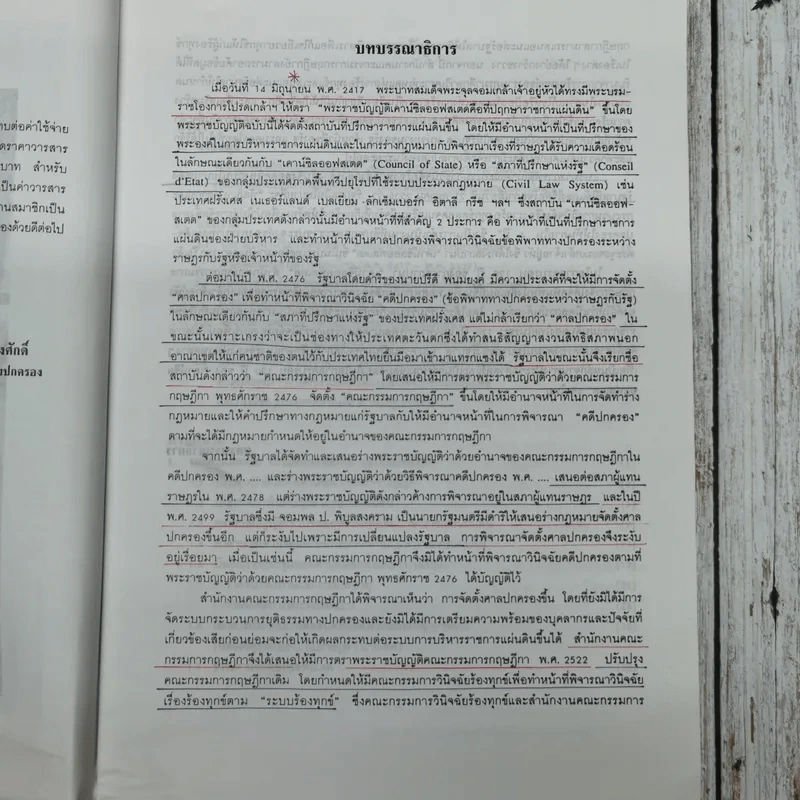 นต่อค่าใช้จ่าย
ตราควารสาร
บาท สำหรับ
เป็นค่าวารสาร
านสมาชิกเป็น
องด้วยดีต่อไป
งศักดิ์
ปกครอง
บทบรรณาธิการ
เมื่อวันที่ 14 มิถุนายน พ.ศ. 2417 พระบาทสมเด็จพระจุลจอมเกล้าเจ้าอยู่หัวได้ทรงมีพระบรม-
ราชโองการโปรดเกล้าฯ ให้ตรา "พระราชบัญญัติเคาน์ซิลออฟสเตดคือที่ปฤกษาราชการแผ่นดิน" ขึ้นโดย
พระราชบัญญัติฉบับนี้ได้จัดตั้งสถาบันที่ปรึกษาราชการแผ่นดินขึ้น โดยให้มีอำนาจหน้าที่เป็นที่ปรึกษาของ
พระองค์ในการบริหารราชการแผ่นดินและในการร่างกฎหมายกับพิจารณาเรื่องที่ราษฎรได้รับความเดือดร้อน
ในลักษณะเดียวกันกับ "เคาน์ซิลออฟสเตด" (Council of State) หรือ "สภาที่ปรึกษาแห่งรัฐ" (Conseil
d'Etat) ของกลุ่มประเทศภาคพื้นทวีปยุโรปที่ใช้ระบบประมวลกฎหมาย (Civil Law System) เช่น
ประเทศฝรั่งเศส เนเธอร์แลนด์ เบลเยี่ยม ลักเซิมเบอร์ก อิตาลี กรีซ ฯลฯ ซึ่งสถาบัน "เคาน์ซิลออฟ-
สเตด" ของกลุ่มประเทศดังกล่าวนั้นมีอำนาจหน้าที่ที่สำคัญ 2 ประการ คือ ทำหน้าที่เป็นที่ปรึกษาราชการ
แผ่นดินของฝ่ายบริหาร และทำหน้าที่เป็นศาลปกครองพิจารณาวินิจฉัยข้อพิพาททางปกครองระหว่าง
ราษฎรกับรัฐหรือเจ้าหน้าที่ของรัฐ
ต่อมาในปี พ.ศ. 2476 รัฐบาลโดยดำริของนายปรีดี พนมยงค์ มีความประสงค์ที่จะให้มีการจัดตั้ง
"ศาลปกครอง" เพื่อทำหน้าที่พิจารณาวินิจฉัย "คดีปกครอง" (ข้อพิพาททางปกครองระหว่างราษฎรกับรัฐ)
ในลักษณะเดียวกันกับ "สภาที่ปรึกษาแห่งรัฐ" ของประเทศฝรั่งเศส แต่ไม่กล้าเรียกว่า "ศาลปกครอง" ใน
ขณะนั้นเพราะเกรงว่าจะเป็นช่องทางให้ประเทศตะวันตกซึ่งได้ทำสนธิสัญญาสงวนสิทธิสภาพนอก
อาณาเขตให้แก่คนชาติของตนไว้กับประเทศไทยยื่นมือมาเข้ามาแทรกแซงได้ รัฐบาลในขณะนั้นจึงเรียกชื่อ
สถาบันดังกล่าวว่า "คณะกรรมการกฤษฎีกา" โดยเสนอให้มีการตราพระราชบัญญัติว่าด้วยคณะกรรมการ
กฤษฎีกา พุทธศักราช 2476 จัดตั้ง "คณะกรรมการกฤษฎีกา" ขึ้นโดยให้มีอำนาจหน้าที่ในการจัดทำร่าง
กฎหมายและให้คำปรึกษาทางกฎหมายแก่รัฐบาลกับให้มีอำนาจหน้าที่ในการพิจารณา "คดีปกครอง"
ตามที่จะได้มีกฎหมายกำหนดให้อยู่ในอำนาจของคณะกรรมการกฤษฎีกา
จากนั้น รัฐบาลได้จัดทำและเสนอร่างพระราชบัญญัติว่าด้วยอำนาจของคณะกรรมการกฤษฎีกาใน
คดีปกครอง พ.ศ. .... และร่างพระราชบัญญัติว่าด้วยวิธีพิจารณาคดีปกครอง พ.ศ. .... เสนอต่อสภาผู้แทน
ราษฎรใน พ.ศ. 2478 แต่ร่างพระราชบัญญัติดังกล่าวค้างการพิจารณาอยู่ในสภาผู้แทนราษฎร และในปี
พ.ศ. 2499 รัฐบาลซึ่งมี จอมพล ป. พิบูลสงคราม เป็นนายกรัฐมนตรีมีดำริให้เสนอร่างกฎหมายจัดตั้งศาล
ปกครองขึ้นอีก แต่ก็ระงับไปเพราะมีการเปลี่ยนแปลงรัฐบาล การพิจารณาจัดตั้งศาลปกครองจึงระงับ
อยู่เรื่อยมา เมื่อเป็นเช่นนี้ คณะกรรมการกฤษฎีกาจึงมิได้ทำหน้าที่พิจารณาวินิจฉัยคดีปกครองตามที่
พระราชบัญญัติว่าด้วยคณะกรรมการกฤษฎีกา พุทธศักราช 2476 ได้บัญญัติไว้
สำนักงานคณะกรรมการกฤษฎีกาได้พิจารณาเห็นว่า การจัดตั้งศาลปกครองขึ้น โดยที่ยังมิได้มีการ
จัดระบบกระบวนการยุติธรรมทางปกครองและยังมิได้มีการเตรียมความพร้อมของบุคลากรและปัจจัยที่
เกี่ยวข้องเสียก่อนย่อมจะก่อให้เกิดผลกระทบต่อระบบการบริหารราชการแผ่นดินขึ้นได้ สำนักงานคณะ
กรรมการกฤษฎีกาจึงได้เสนอให้มีการตราพระราชบัญญัติคณะกรรมการกฤษฎีกา พ.ศ. 2522 ปรับปรุง
คณะกรรมการกฤษฎีกาเดิม โดยกำหนดให้มีคณะกรรมการวินิจฉัยร้องทุกข์เพื่อทำหน้าที่พิจารณาวินิจฉัย
เรื่องร้องทุกข์ตาม "ระบบร้องทุกข์" ซึ่งคณะกรรมการวินิจฉัยร้องทุกข์และสำนักงานคณะกรรมการ